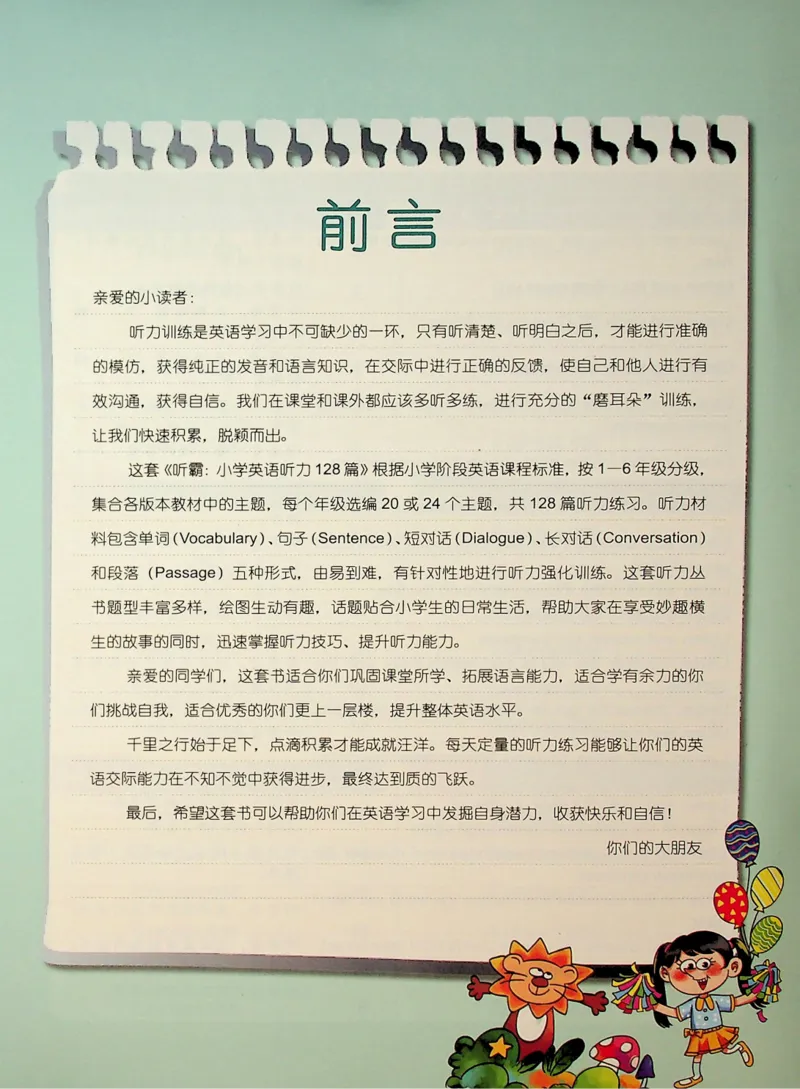 前言
亲爱的小读者：
听力训练是英语学习中不可缺少的一环，只有听清楚、听明白之后，才能进行准确
的模仿，获得纯正的发音和语言知识，在交际中进行正确的反馈，使自己和他人进行有
效沟通，获得自信。我们在课堂和课外都应该多听多练，进行充分的“磨耳朵”训练，
让我们快速积累，脱颖而出。
这套《听霸：小学英语听力 128 篇》根据小学阶段英语课程标准，按 1—6 年级分级，
集合各版本教材中的主题，每个年级选编 20 或 24 个主题，共 128 篇听力练习。听力材
料包含单词（Vocabulary）、句子（Sentence）、短对话（Dialogue）、长对话（Conversation）
和段落（Passage）五种形式，由易到难，有针对性地进行听力强化训练。这套听力丛
书题型丰富多样，绘图生动有趣，话题贴合小学生的日常生活，帮助大家在享受妙趣横
生的故事的同时，迅速掌握听力技巧、提升听力能力。
亲爱的同学们，这套书适合你们巩固课堂所学、拓展语言能力，适合学有余力的你
们挑战自我，适合优秀的你们更上一层楼，提升整体英语水平。
千里之行始于足下，点滴积累才能成就汪洋。每天定量的听力练习能够让你们的英
语交际能力在不知不觉中获得进步，最终达到质的飞跃。
最后，希望这套书可以帮助你们在英语学习中发掘自身潜力，收获快乐和自信！
你们的大朋友